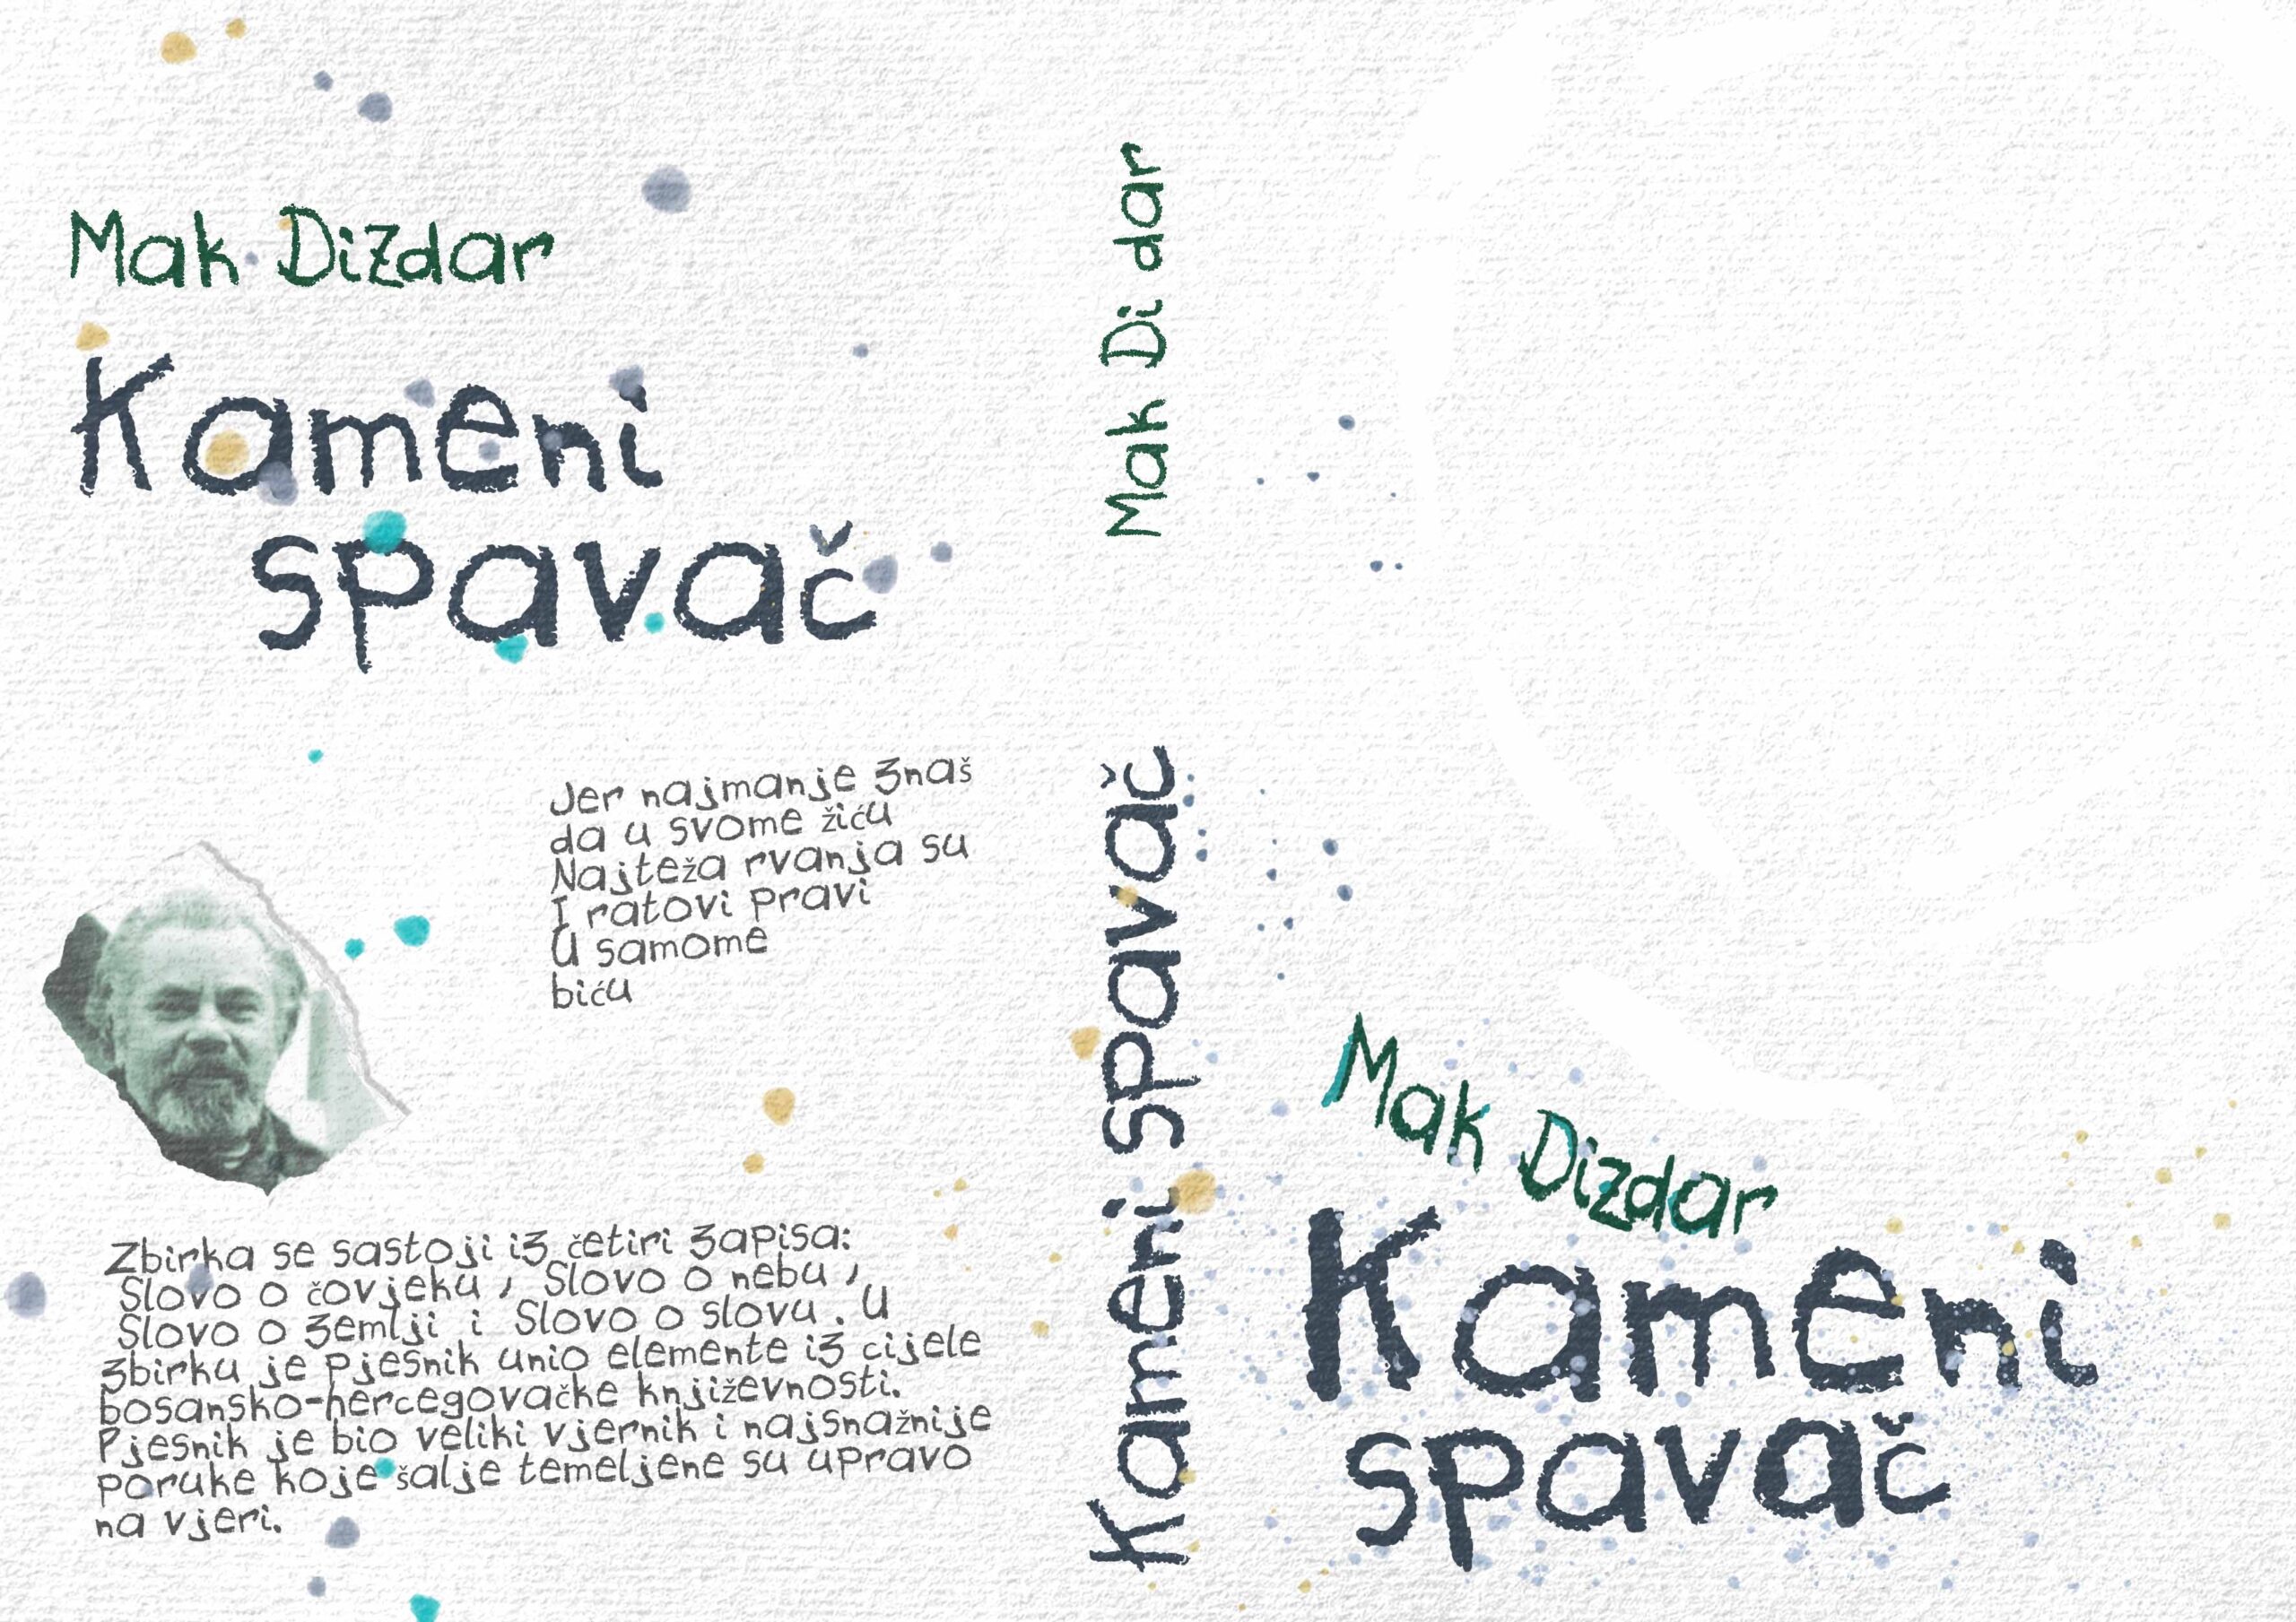 Mak Dizdar
Kameni
spavač
Jer najmanje znaš
da u svome žiću
Najteža rvanja su
I ratovi pravi
U samome
biću
Zbirka se sastoji iz četiri zapisa:
Slovo o čovjeku , Slovo o nebu ,
Slovo o zemlji i Slovo o slovu . U
zbirku je pjesnik unio elemente iz cijele
bosansko-hercegovačke književnosti.
Pjesnik je bio veliki vjernik i najsnažnije
poruke koje šalje temeljene su upravo
na vjeri.
Mak Di dar
Kameni spavač
Mak Dizdar
Kameni
spavač